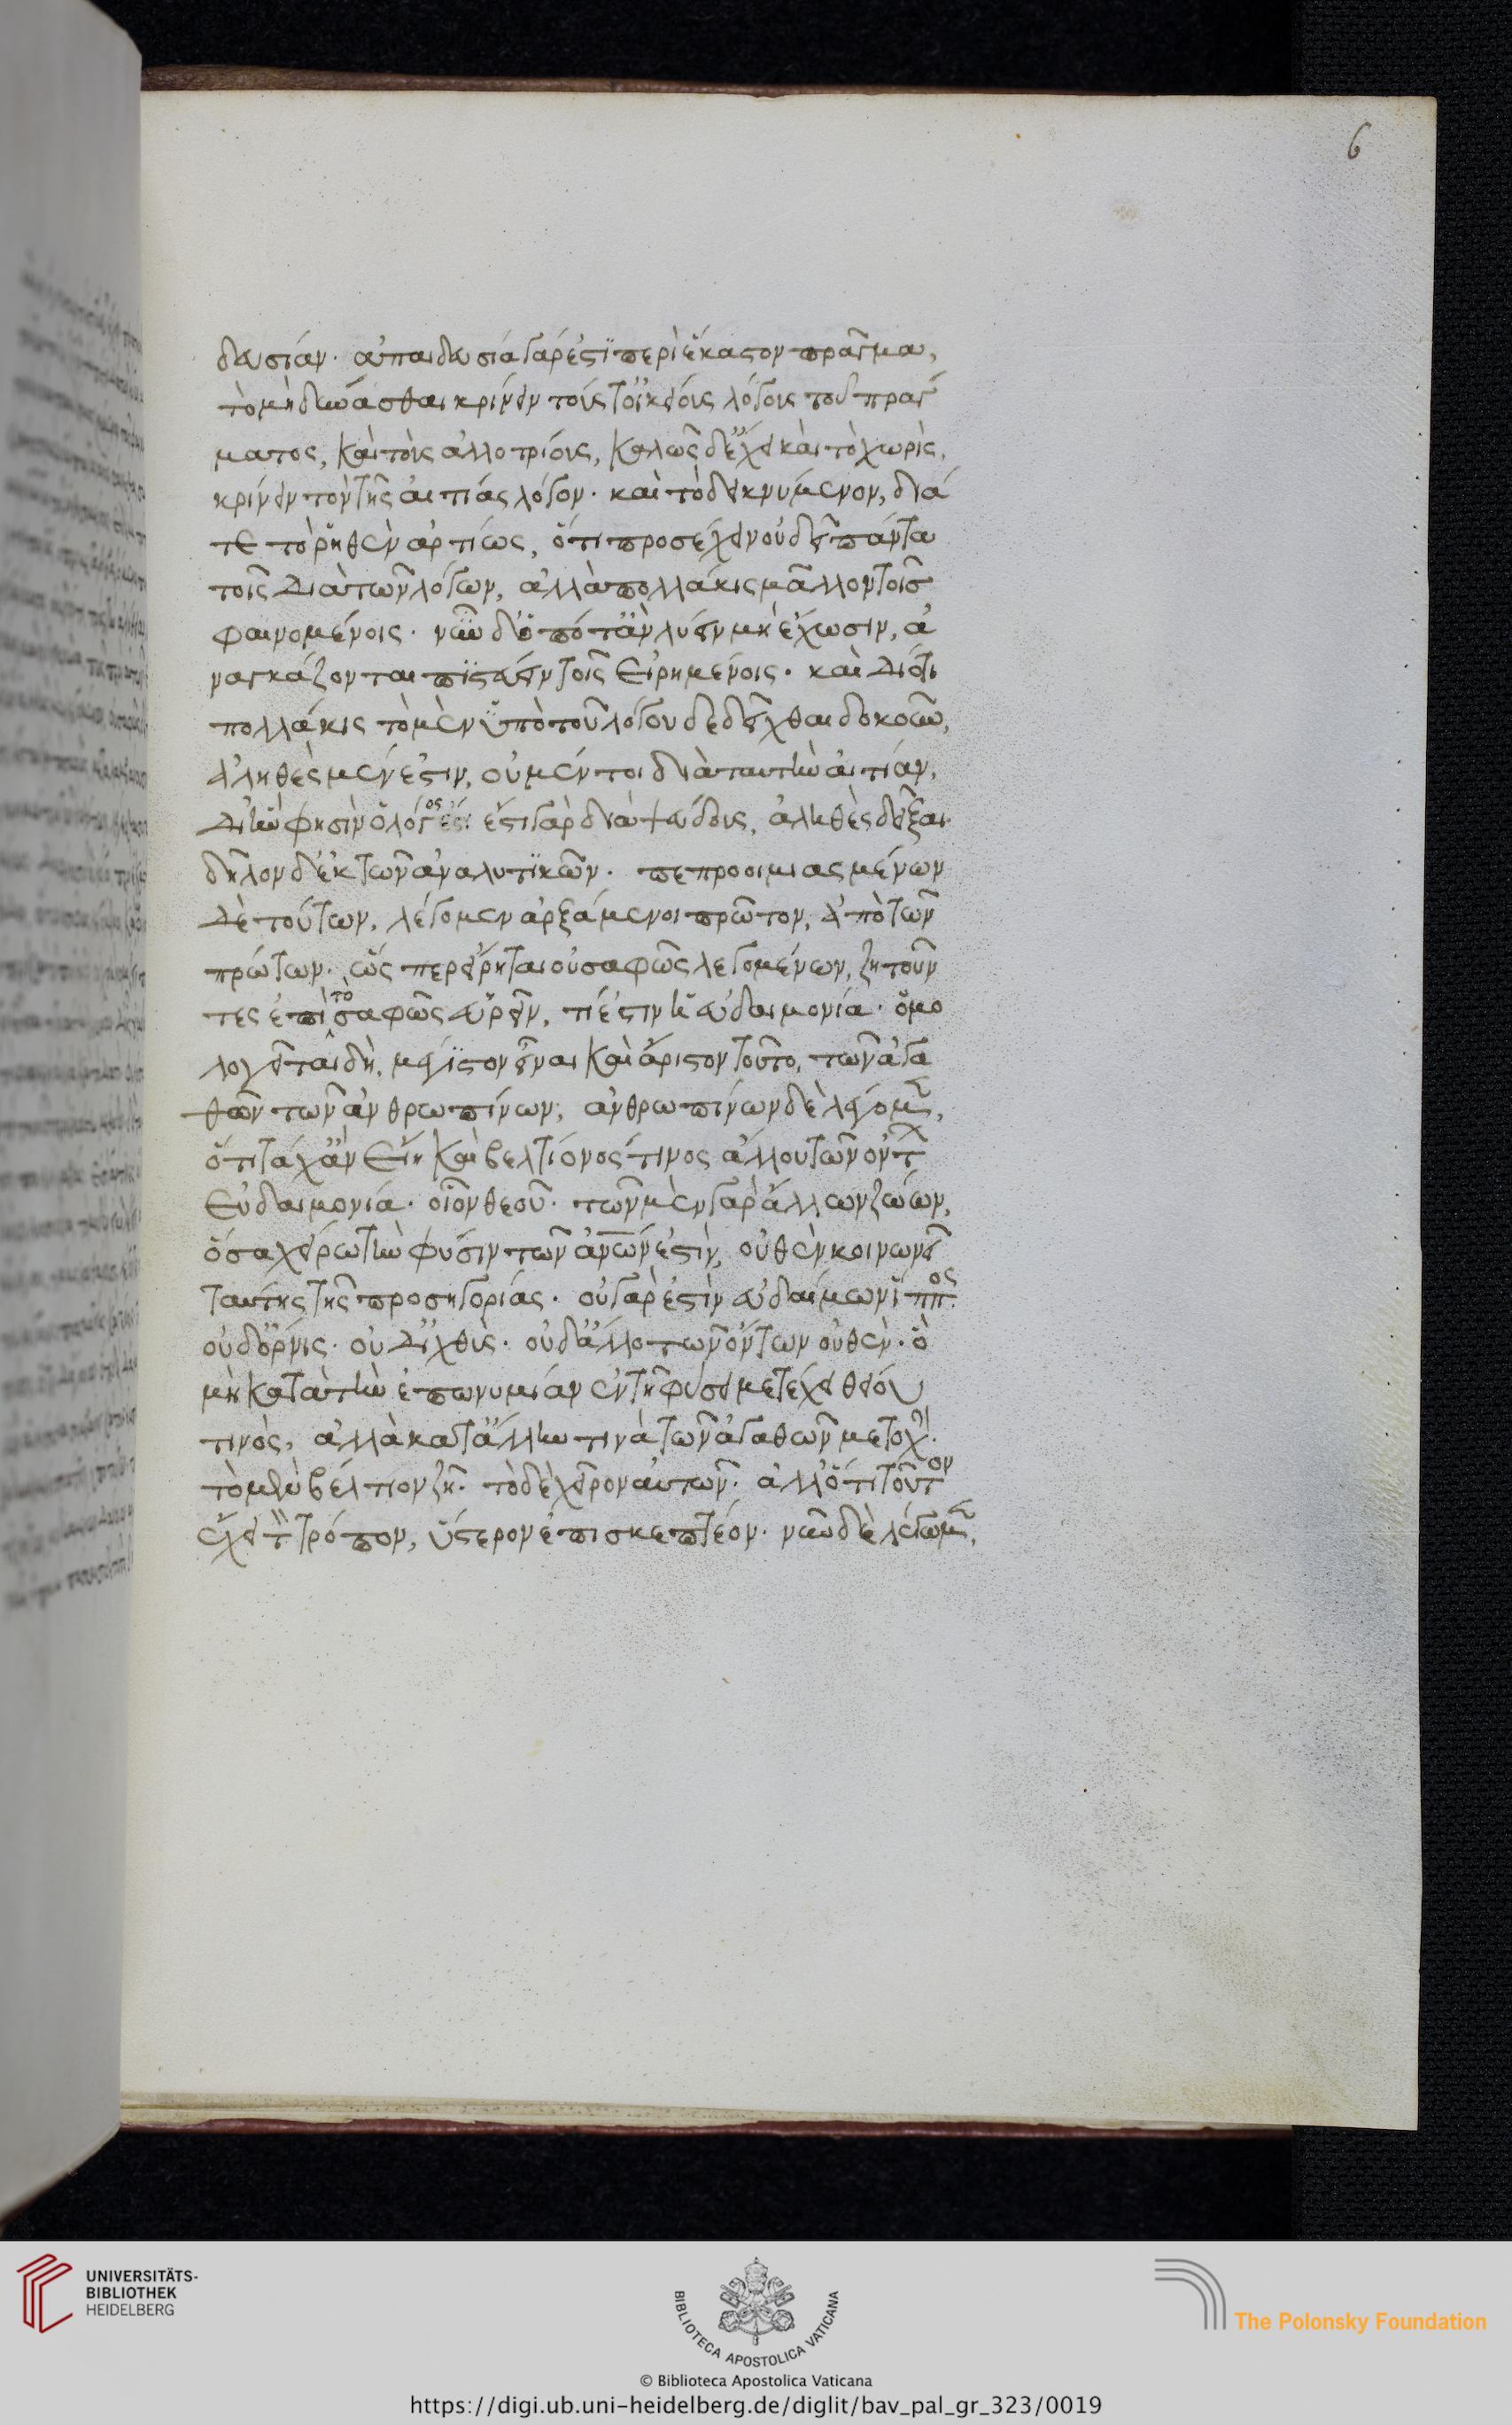 6
δευσίαν· ἀπαιδευσία γάρ ἐστι περὶ ἕκαστον πρᾶγμα,
τὸ μὴ δύνασθαι κρίνειν τούς τ' οἰκείους λόγους τοῦ πράγ
ματος, καὶ τοὺς ἀλλοτρίους, καλῶς δ' ἔχει καὶ τὸ χωρὶς,
κρίνειν τὸν τῆς αἰτίας λόγον· καὶ τὸ δεικνύμενον, διά
τε τὸ ῥηθὲν ἀρτίως, ὅτι προσέχειν οὐ δεῖ πάντα
τοῖς διὰ τῶν λόγων, ἀλλὰ πολλάκις μᾶλλον τοῖς
φαινομένοις· νῦν δ' ὁπότ' ἂν λύειν μὴ ἔχωσιν, ἀ
ναγκάζονται πιστεύειν τοῖς εἰρημένοις· καὶ διότι
πολλάκις τὸ μὲν ὑπὸ τοῦ λόγου δεδεῖχθαι δοκοῦν,
ἀληθὲς μέν ἐστιν, οὐ μέντοι διὰ ταύτην αἰτίαν,
δι' ἣν φησὶν ὁ λόγος ἐστι· ἔστι γὰρ διὰ ψεύδους, ἀληθὲς δεῖξαι·
δῆλον δ' ἐκ τῶν ἀναλυτικῶν· πεπροοιμιασμένων
δὲ τούτων, λέγομεν ἀρξάμενοι πρῶτον, ἀπὸ τῶν
πρώτων· ὥς περ εἴρηται οὐ σαφῶς λεγομένων, ζητοῦν
τες ἐπὶ τὸ σαφῶς εὑρεῖν, τί ἐστιν ἡ εὐδαιμονία· ὁμο
λογεῖται δὴ, μέγιστον εἶναι καὶ ἄριστον τοῦτο, τῶν ἀγα
θῶν τῶν ἀνθρωπίνων, ἀνθρωπίνων δὲ λέγομεν,
ὅτι τάχ' ἂν εἴη καὶ βελτίονός τινος ἄλλου τῶν ὄντων
εὐδαιμονία· οἷον θεοῦ· τῶν μὲν γὰρ ἄλλων ζώων,
ὅσα χείρω τὴν φύσιν τῶν ἀνων ἐστὶν, οὐθὲν κοινωνεῖ
ταύτης τῆς προσηγορίας· οὐ γάρ ἐστὶν εὐδαίμων ἵππος
οὐδ' ὄρνις· οὐδ' ἰχθὺς· οὐδ' ἄλλο τῶν ὄντων οὐθὲν· ὃ
μὴ κατὰ τὴν ἐπωνυμίαν ἐν τῇ φύσει μετέχει θείου
τινὸς, ἀλλὰ κατ' ἄλλην τινὰ τῶν ἀγαθῶν μετοχὴν·
τὸ μὲν βέλτιον ζῇ· τὸ δὲ χεῖρον αὐτῶν· ἀλλ' ὅτι τοῦτον
ἔχει τὸν τρόπον, ὕστερον ἐπισκεπτέον· νῦν δὲ λέγωμεν,
UNIVERSITÄTS-
BIBLIOTHEK
HEIDELBERG
BIBLIOTECA APOSTOLICA VATICANA
The Polonsky Foundation
© Biblioteca Apostolica Vaticana
https://digi.ub.uni-heidelberg.de/diglit/bav_pal_gr_323/0019